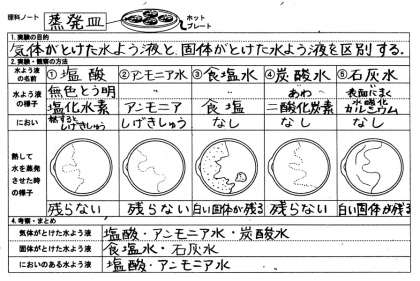 理科ノート 蒸発皿 ホットプレート
1. 実験の目的
気体がとけた水よう液と、固体がとけた水よう液を区別する.
2. 実験・観察の方法
水よう液の名前 ①塩酸 ②アンモニア水 ③食塩水 ④炭酸水 ⑤石灰水
水よう液の様子 無色とう明 〃 〃 あわ 表面にまく
塩化水素 アンモニア 食塩 二酸化炭素 水酸化カルシウム
におい 熱するとしげきしゅう しげきしゅう なし なし なし
熱して水を蒸発させた時の様子
残らない 残らない 白い固体が残る 残らない 白い固体が残る
4. 考察・まとめ
気体がとけた水よう液 塩酸・アンモニア水・炭酸水
固体がとけた水よう液 食塩水・石灰水
においのある水よう液 塩酸・アンモニア水